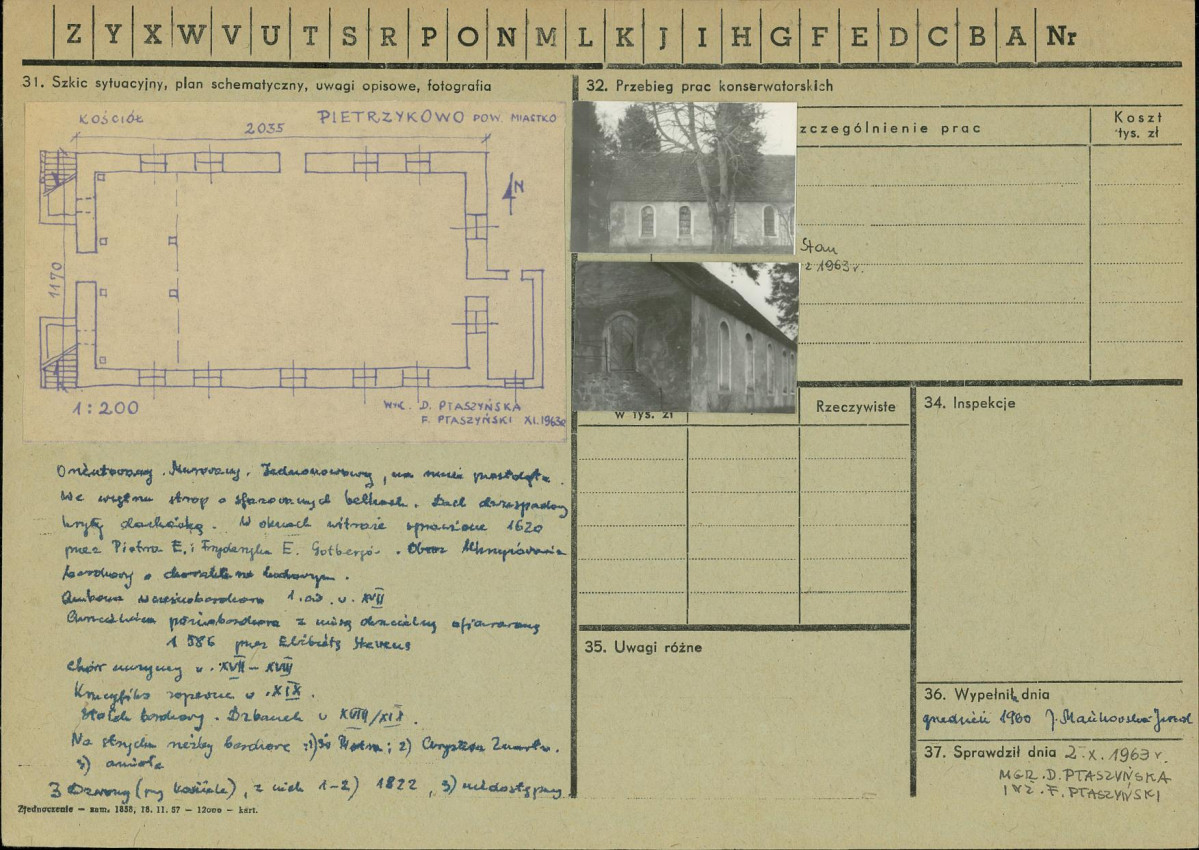 Z Y X W V U T S R P O N M L K J I H G F E D C B A Nr
31. Szkic sytuacyjny, plan schematyczny, uwagi opisowe, fotografia
KOŚCIÓŁ
PIETRZYKOWO POW. MIASTKO
2035
N
1170
1:200
WYK. D. PTASZYŃSKA
F. PTASZYŃSKI XI.1963r
Orientowany. Murowany. Jednonawowy, na
We wnętrzu strop o sfazowanych belkach. Dach dwuspadowy
kryty dachówką. W oknach witraże sprawione 1620
przez Piotra E. i Fryderyka E.
barokowy o charakterze ludowym.
Ambona wczesnobarokowa 1. w. XVII
Chrzcielnica z misą chrzcielną ofiarowaną
1586 przez Elżbietę Stevens
Chór muzyczny w. XVII – XVIII
Krucyfiks w. XIX.
barokowy. Dzbanek w XVIII/XIX.
Na strychu rzeźby barokowe: 1) św Piotra; 2) Chrystusa Zmartw.
3) anioła
3 Dzwony (przy kościele), z nich 1-2) 1822, 3) niedostępny
Zjednoczenie – zam. 1858, 15. 11. 57 – 12000 – kart.
32. Przebieg prac konserwatorskich
zczególnienie prac
Koszt
tys. zł
Stan
z 1963 r.
w tys. zł
Rzeczywiste
34. Inspekcje
35. Uwagi różne
36. Wypełnił dnia
grudzień 1960 J.
37. Sprawdził dnia 2.X.1963 r.
MGR. D. PTASZYŃSKA
INŻ. F. PTASZYŃSKI